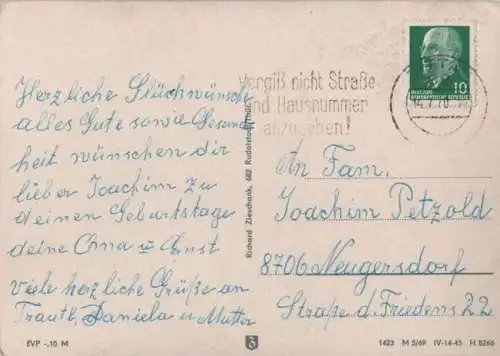 Herzliche Glückwünsche
alles Gute sowie Gesund
heit wünschen dir
lieber Joachim zu
deinen Geburtstage
deine Oma u Ernst
Viele herzliche Grüße an
Trautl, Daniela u Mutter
EVP -,10 M
Richard Zieschank, 682 Rudolstadt (Thür.)
Vergiß nicht Straße
und Hausnummer
anzugeben!
10
DEUTSCHE
DEMOKRATISCHE REPUBLIK
An Fam.
Joachim Petzold
8706 Neugersdorf
Straße d. Friedens 22
1423 M 5/69 IV-14-45 H 0266